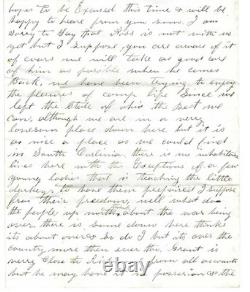 to be Excused this time & will be
happy to hear from you soon. I am
sorry to say that Ribs is not with us
yet but I suppose you are aware of it
of cours we will take as good care
of him as possible when he comes
Back. we have been trying to enjoy
the pleasure of camp life Since we
left the State of ohio the best we
can although we are in a very
lonesom place down here but it is
as nice a place as we could find
in South Carlina, their is no inhabitance
is here with the Exceptions of a few
young ladies that is teaching the little
to have them prepaired I suppose
from their freedom, well what do
the people up north about the war being
over there is some down here think
its about over & so do I but its over the
country more than ever this. Grant is
verry close to from all accounts
but he may have in possesion & the
ebay